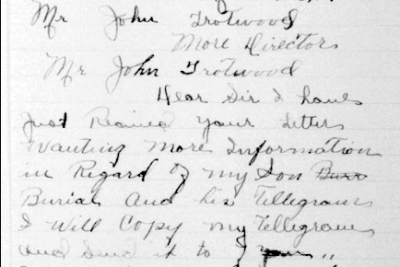 Mr John Trotwood
More Directors
Mr John Trotwood
Dear Sir I have
Just Recived your letters
Wanting More Information
in Regard of my Son Burr
Burial And his Tellegram
I Will Copy my Tellegram
And Send it to you